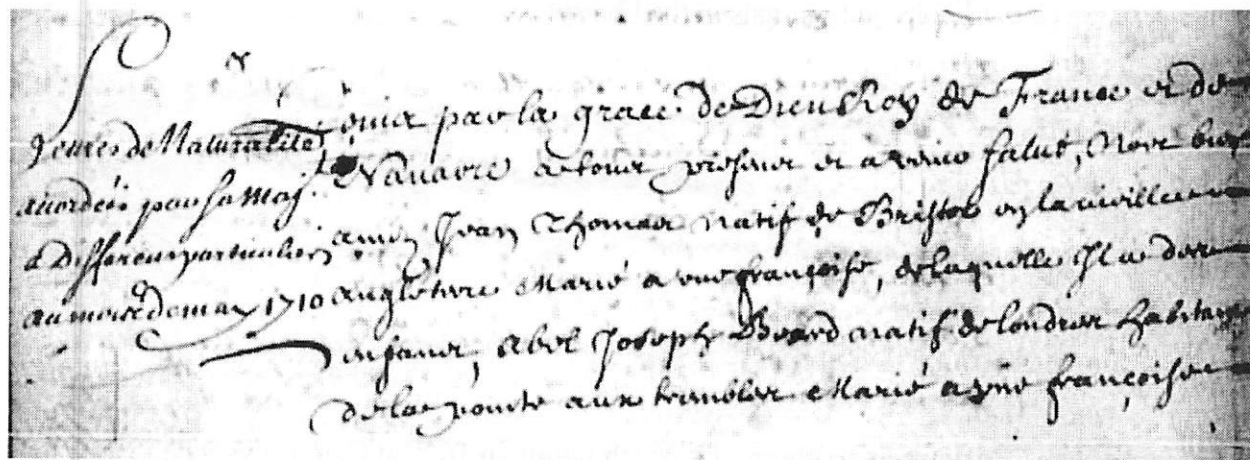 Lettres de Naturalité
accordées par sa Maj.
a Differens particuliers
au mois de may 1710
Louis par la grace de Dieu Roy de France et de
Navarre a tous presens et a venir salut, Nos bien
amez Jean Thomas natif de Bristol en la vieille
angleterre Marié a une françoise, de laquelle Il a des
enfans, abel Joseph natif de londres habitant
de la pointe aux trembles Marié a une françoise